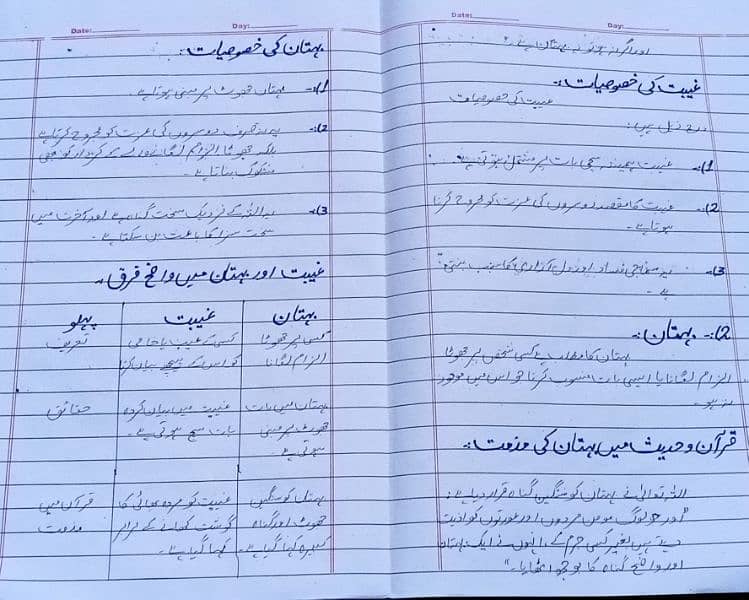 Date:
Day:
اور اگر نہ ہو تو یہ بہتان ہے۔"
غیبت کی خصوصیات:۔
غیبت کی خصوصیات
درج ذیل ہیں:
1)۔ غیبت ہمیشہ سچی بات پر مشتمل ہوتی ہے۔
2)۔ غیبت کا مقصد دوسروں کی عزت کو مجروح کرنا
ہوتا ہے۔
3)۔ یہ سماجی فساد اور دل آزاری کا سبب بنتی
ہے۔
2)۔ بہتان:۔
بہتان کا مطلب ہے کسی شخص پر جھوٹا
الزام لگانا یا ایسی بات منسوب کرنا جو اس میں موجود
نہ ہو۔
قرآن و حدیث میں بہتان کی مذمت:۔
اللہ تعالیٰ نے بہتان کو سنگین گناہ قرار دیا ہے:
"اور جو لوگ مومن مردوں اور عورتوں کو اذیت
دیتے ہیں بغیر کسی جرم کے، انہوں نے ایک بہتان
اور واضح گناہ کا بوجھ اٹھایا۔"
Date:
Day:
بہتان کی خصوصیات:۔
1)۔ بہتان جھوٹ پر مبنی ہوتا ہے۔
2)۔ یہ نہ صرف دوسروں کی عزت کو مجروح کرتا ہے
بلکہ جھوٹا الزام لگانے والے کے کردار کو بھی
مشکوک بناتا ہے۔
3)۔ یہ اللہ کے نزدیک سخت گناہ ہے اور آخرت میں
سخت سزا کا باعث بن سکتا ہے۔
غیبت اور بہتان میں واضح فرق:۔
پہلو غیبت بہتان
تعریف کسی کے عیب یا خامی کسی پر جھوٹا
کو اس کے پیچھے بیان کرنا الزام لگانا
حقائق غیبت میں بیان کردہ بہتان میں بات
بات سچ ہوتی ہے۔ جھوٹ پر مبنی
ہوتی ہے۔
قرآن میں غیبت کو مردہ بھائی کا بہتان کو سنگین
مذمت گوشت کھانے کے برابر جھوٹ اور گناہ
کہا گیا ہے۔ کبیرہ کہا گیا ہے۔